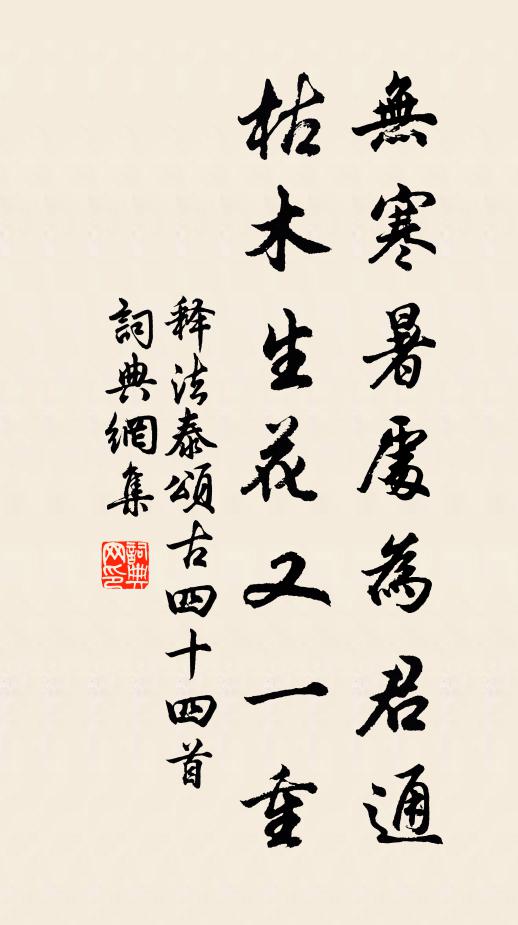 無寒暑處為君通
枯木生花又一重
释法泰頌古四十四首
詞典網集
詞典网印